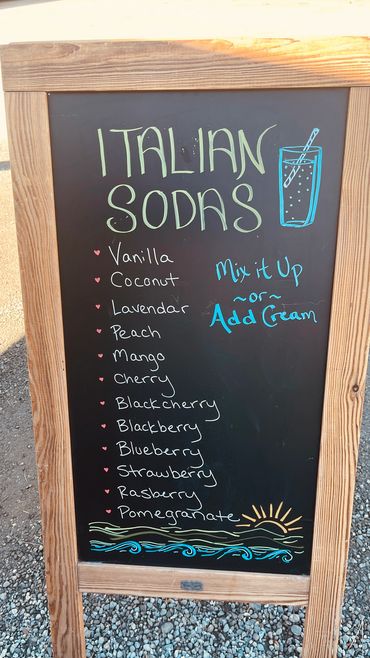 ITALIAN
SODAS
Vanilla
Coconut
Lavendar
Peach
Mango
Cherry
Blackcherry
Blackberry
Blueberry
Strawberry
Rasberry
Pomegranate
Mix it Up
~or~
Add Cream